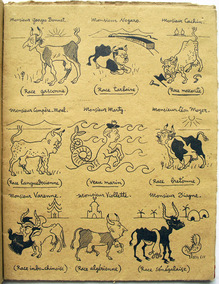 Monsieur Georges Bonnet.
Monsieur Nogaro.
Monsieur Cachin.
(Race gasconne)
(Race tarbaise)
(Race
Monsieur Compère-Morel.
Monsieur Marty
Monsieur Léon Meyer.
(Race languedocienne)
(Veau marin)
(Race bretonne)
Monsieur Varenne.
Monsieur Viollette.
Monsieur Diagne.
(Race indo-chinoise)
(Race algérienne)
(Race sénégalaise)